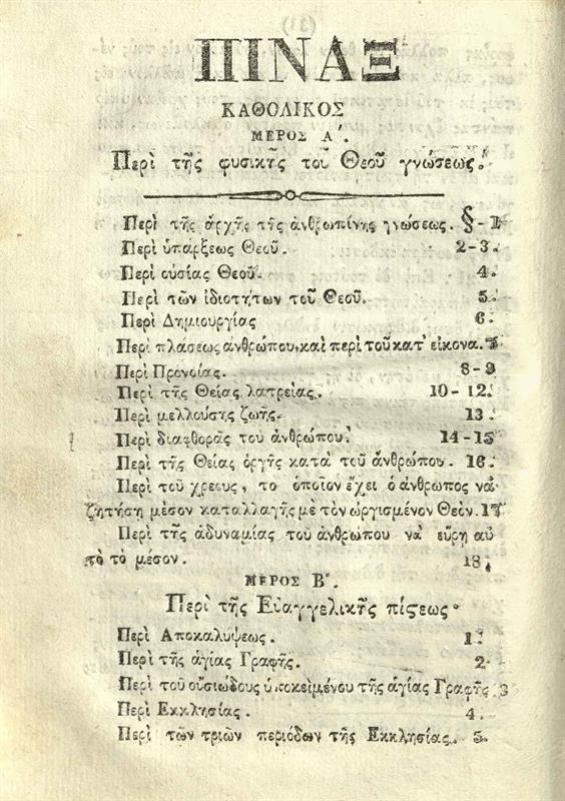 ΠΙΝΑΞ
ΚΑΘΟΛΙΚΟΣ
ΜΕΡΟΣ Α΄.
Περὶ τῆς φυσικῆς τοῦ Θεοῦ γνώσεως.
Περὶ τῆς ἀρχῆς τῆς ἀνθρωπίνης γνώσεως. § - 1
Περὶ ὑπάρξεως Θεοῦ. 2-3.
Περὶ οὐσίας Θεοῦ. 4.
Περὶ τῶν ἰδιοτήτων τοῦ Θεοῦ. 5.
Περὶ Δημιουργίας 6.
Περὶ πλάσεως ἀνθρώπου, καὶ περὶ τοῦ κατ᾽ εἰκονα. 7.
Περὶ Προνοίας. 8-9
Περὶ τῆς Θείας λατρείας. 10-12.
Περὶ μελλούσης ζωῆς. 13.
Περὶ διαφθορᾶς του ἀνθρώπου. 14-15
Περὶ τῆς Θείας ὀργῆς κατὰ τοῦ ἀνθρώπου. 16.
Περὶ τοῦ χρεους, το ὁποῖον ἔχει ὁ ἄνθρωπος νὰ
ζητήσῃ μέσον καταλλαγῆς μὲ τὸν ὠργισμένον Θεὸν. 17
Περὶ τῆς ἀδυναμίας τοῦ ἀνθρώπου νὰ εὕρῃ αὐ
τὸ τὸ μέσον. 18.
ΜΕΡΟΣ Β΄.
Περὶ τῆς Εὐαγγελικῆς πίϛεως.
Περὶ Αποκαλύψεως. 1.
Περὶ τῆς ἁγίας Γραφῆς. 2.
Περὶ τοῦ οὐσιώδους ὑποκειμένου τῆς ἁγίας Γραφῆς 3
Περὶ Εκκλησίας. 4.
Περὶ τῶν τριῶν περιόδων τῆς Εκκλησίας. 5.